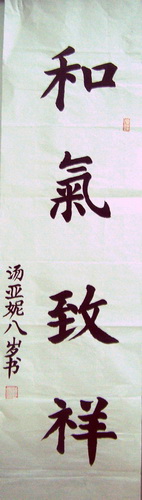 和氣致祥
汤亚妮八岁书